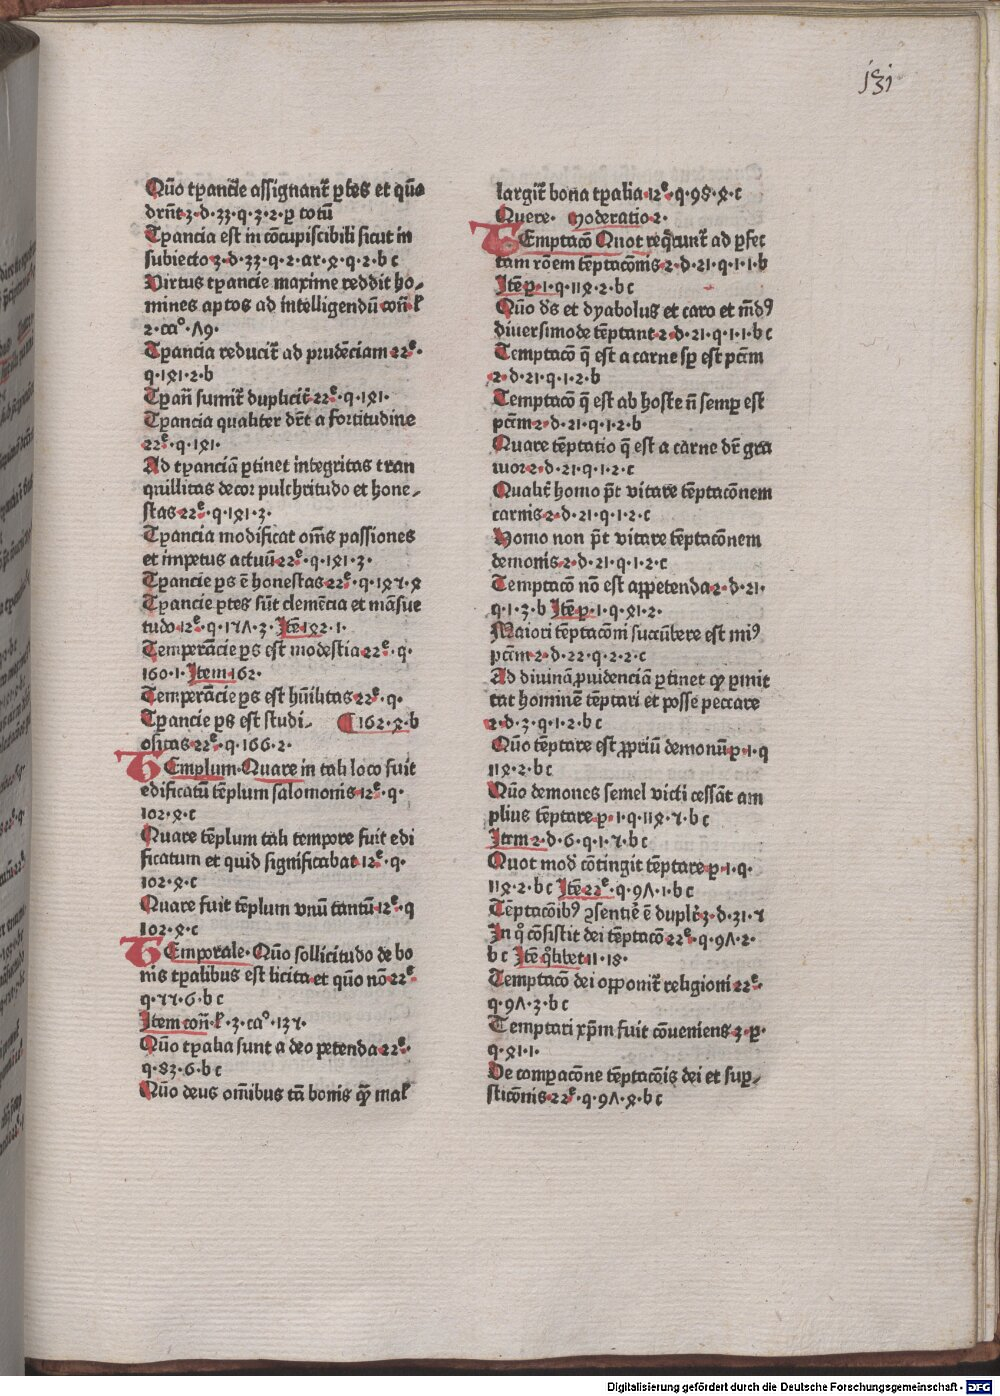 131
Qūo tꝑancie assignant̄ ꝑtes et quo
drn̄t 3·d·33·q·3·2·ꝑ totū
Tꝑancia est in cōcupiscibili sicut in
subiecto 3·d·33·q·2·ar·ꝝ·q·2·b c
Virtus tꝑancie maxime reddit ho⸗
mines aptos ad intelligendū con̄·l̄
2·ca°·ɅƷ·
Tꝑancia reducit̄ ad prudēciam 22ᵉ·
q·181·2·b
Tꝑan̄ sumit̄ duplicit̄ 22ᵉ·q·181·
Tꝑancia qualiter drt̄ a fortitudine
22ᵉ·q·181·
Ad tꝑanciā ꝑtinet integritas tran
quillitas decor pulchritudo et hone⸗
stas 22ᵉ·q·181·3·
Tꝑancia modificat om̄s passiones
et impetus actuū 22ᵉ·q·181·3·
Tꝑancie ꝑs ē honestas 22ᵉ·q·187·ꝝ
Tꝑancie ꝑtes sūt clemēcia et māsue
tudo 12ᵉ·q·1ɅɅ·3·Itē 1ꝝ2·1·
Temperācie ꝑs est modestia 22ᵉ·q·
160·1·Item 162·
Temperācie ꝑs est hūilitas 22ᵉ·q·
Tꝑancie ꝑs est studi· ¶ 162·ꝝ·b
ositas 22ᵉ·q·166·2·
TEmplum·Quare in tali loco fuit
edificatū tēplum salomonis 12ᵉ·q·
102·ꝝ·c
Quare tēplum tali tempore fuit edi
ficatum et quid significabat 12ᵉ·q·
102·ꝝ·c
Quare fuit tēplum vnū tantū 12ᵉ·q
102·ꝝ·c
TEmporale·Qūo sollicitudo de bo
nis tꝑalibus est licita et qūo nō 22ᵉ
q·77·6·b c
Item con̄·l̄·3·ca°·137·
Qūo tꝑalia sunt a deo petenda 22ᵉ·
q·83·6·b c
Qūo deus om̄ibus tā bonis qꝫ mal̄
largit̄ bona tꝑalia 12ᵉ·q·98·ꝝ·c
Quere· moderatio 2·
TEmptacō Quot reqͥrunt̄ ad ꝑfec
tam rōem tēptacōnis 2·d·21·q·1·1·b
Itē ꝑ·1·q·11ꝝ·2·b c
Qūo ds̄ et dyabolus et caro et mūdꝰ
diuersimode tēptant 2·d·21·q·1·1·b c
Temptacō q̄ est a carne sꝑ est pctm̄
2·d·21·q·1·2·b
Temptacō q̄ est ab hoste n̄ semꝑ est
pctm̄ 2·d·21·q·1·2·b
Quare tēptatio q̄ est a carne dr̄ gra
uior 2·d·21·q·1·2·c
Qualit̄ homo pt̄ vitare tēptacōnem
carnis 2·d·21·q·1·2·c
Homo non pt̄ vitare tēptacōnem
demonis 2·d·21·q·1·2·c
Temptacō nō est apꝑetenda 2·d·21·
q·1·3·b Itē ꝑ·1·q·ꝝ1·2·
Maiori tēptacōni succūbere est miꝰ
pctm̄ 2·d·22·q·2·2·c
Ad diuinā ꝓuidenciā ꝑtinet qꝫ ꝑmit
tat hominē tēptari et posse peccare
2·d·3·q·1·2·b c
Qūo tēptare est ꝓpriū demonū ꝑ·1·q
11ꝝ·2·b c
Qūo demones semel victi cessāt am
plius tēptare ꝑ·1·q·11ꝝ·7·b c
Item 2·d·6·q·1·7·b c
Quot mod̄ cōtingit tēptare ꝑ·1·q·
11ꝝ·2·b c Itē 22ᵉ·q·9Ʌ·1·b c
Tēptacōibꝰ ꝯsentiē ē dupl̄r 3·d·31·7
In qͦ cōsistit dei tēptacō 22ᵉ·q·9Ʌ·2·
b c Itē qͦlibet 11·18·
Temptacō dei opponit̄ religioni 22ᵉ·
q·9Ʌ·3·b c
Temptari xp̄m fuit cōueniens 3·ꝑ·
q·ꝝ1·1·
De compacōne tēptacōis dei et suꝑ⸗
sticōnis 22ᵉ·q·9Ʌ·ꝝ·b c
Digitalisierung gefördert durch die Deutsche Forschungsgemeinschaft · DFG